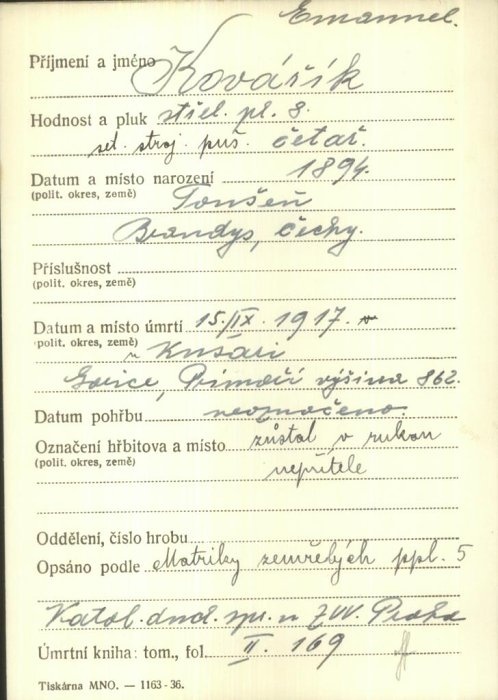 Emanuel.
Příjmení a jméno Kovářík
Hodnost a pluk střel. pl. 8.
set. stroj. puš. četař.
Datum a místo narození 1894.
(polit. okres, země) Toušeň
Brandys, Čechy.
Příslušnost
(polit. okres, země)
Datum a místo úmrtí 15./IX. 1917. v
(polit. okres, země) u Kusari
Gorice, Přímoří výšina 862.
Datum pohřbu neoznačeno.
Označení hřbitova a místo zůstal v rukou
(polit. okres, země) nepřítele
Oddělení, číslo hrobu
Opsáno podle Matriky zemřelých ppl. 5
Katol. duch. spr. u ZVV. Praha
Úmrtní kniha: tom., fol. II. 169
Tiskárna MNO. — 1163-36.